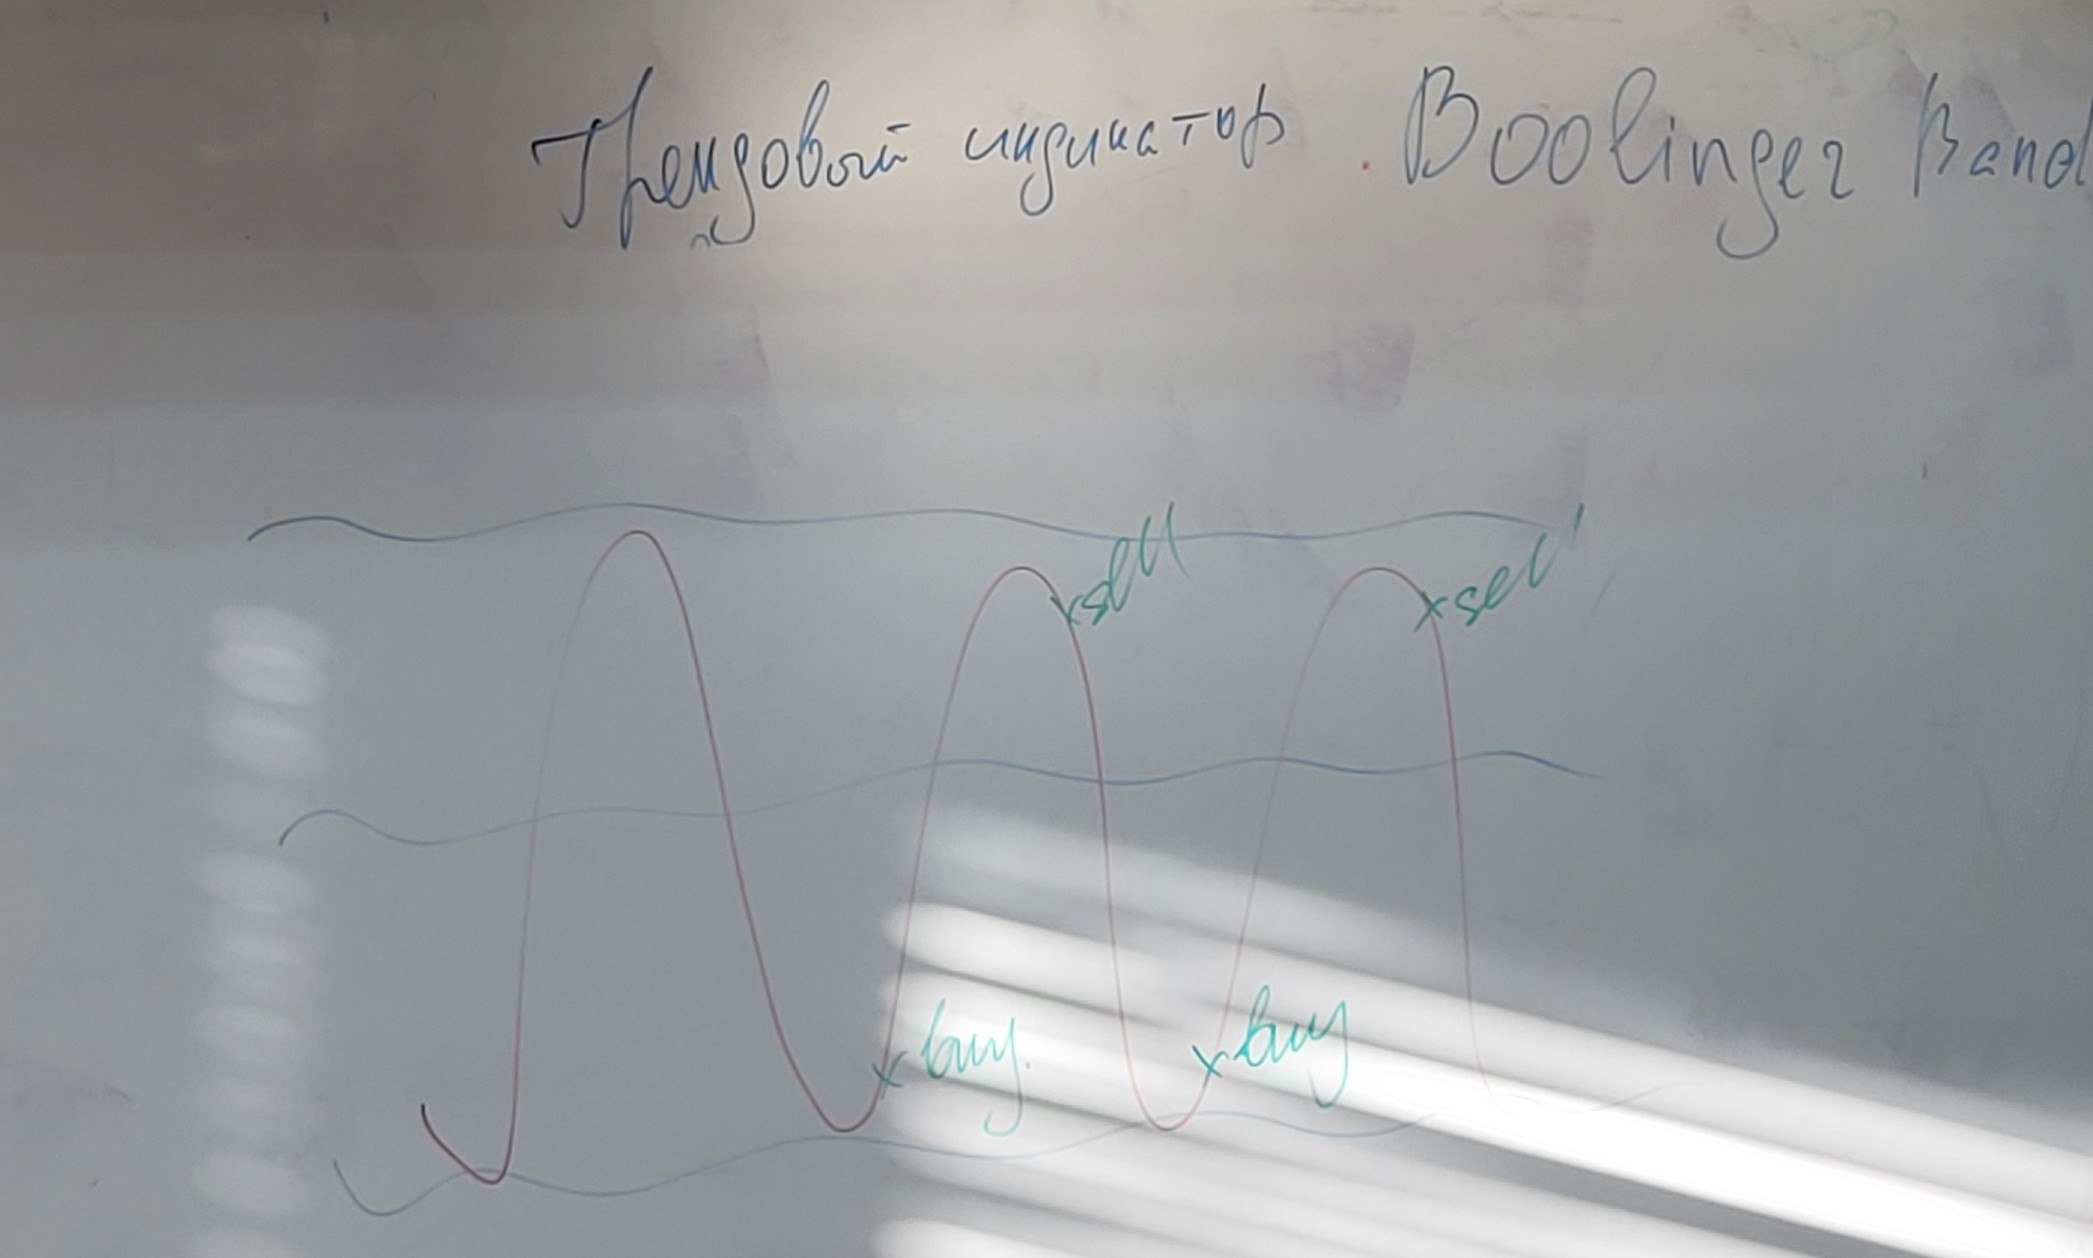 Трендовый индикатор. Boolinger Band
sell
sell
buy.
buy